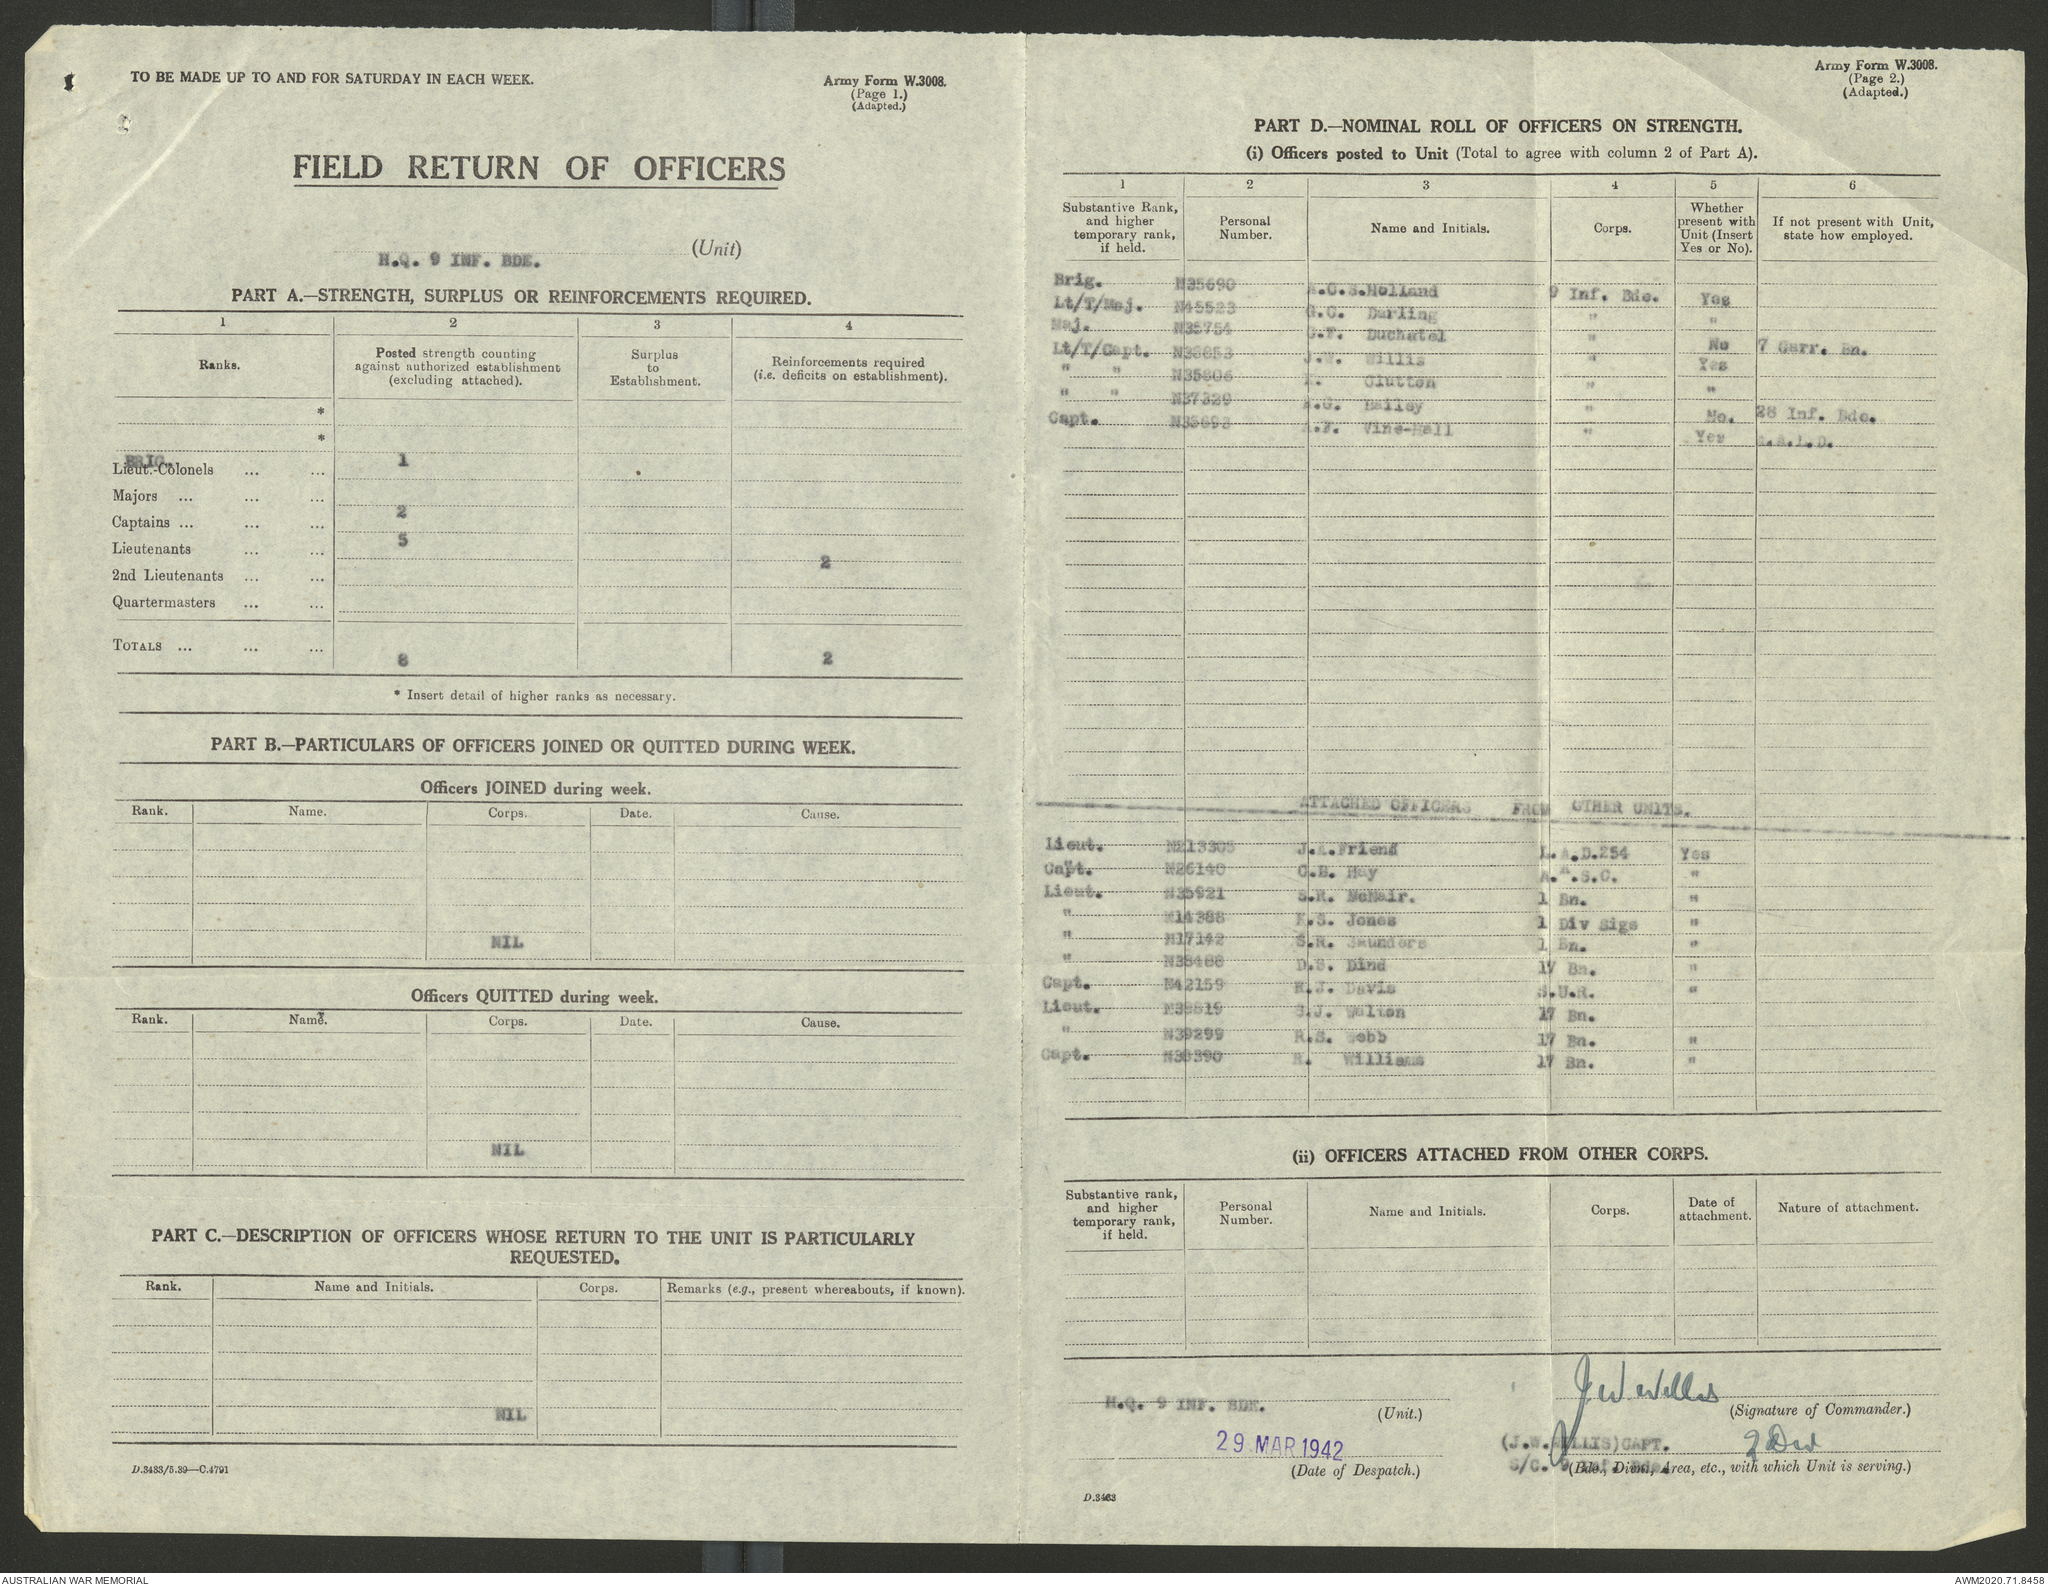 TO BE MADE UP TO AND FOR SATURDAY IN EACH WEEK.
Army Form W.3008.
(Page 1.)
(Adapted.)
FIELD RETURN OF OFFICERS
H.Q. 9 INF. BDE. (Unit)
PART A.—STRENGTH, SURPLUS OR REINFORCEMENTS REQUIRED.
1 2 3 4
Ranks. Posted strength counting against authorized establishment (excluding attached). Surplus to Establishment. Reinforcements required (i.e. deficits on establishment).
*
*
BRIG.
Lieut.-Colonels ... ... 1
Majors ... ... ... 2
Captains ... ... ... 5
Lieutenants ... ... 2
2nd Lieutenants ... ...
Quartermasters ... ...
TOTALS ... ... ... 8 2
* Insert detail of higher ranks as necessary.
PART B.—PARTICULARS OF OFFICERS JOINED OR QUITTED DURING WEEK.
Officers JOINED during week.
Rank. Name. Corps. Date. Cause.
NIL
Officers QUITTED during week.
Rank. Name. Corps. Date. Cause.
NIL
PART C.—DESCRIPTION OF OFFICERS WHOSE RETURN TO THE UNIT IS PARTICULARLY
REQUESTED.
Rank. Name and Initials. Corps. Remarks (e.g., present whereabouts, if known).
NIL
D.3433/5.39—C.4791
Army Form W.3008.
(Page 2.)
(Adapted.)
PART D.—NOMINAL ROLL OF OFFICERS ON STRENGTH.
(i) Officers posted to Unit (Total to agree with column 2 of Part A).
1 2 3 4 5 6
Substantive Rank, and higher temporary rank, if held. Personal Number. Name and Initials. Corps. Whether present with Unit (Insert Yes or No). If not present with Unit, state how employed.
Brig. N35690 A.C.S.Holland 9 Inf. Bde. Yes
Lt/T/Maj. N45523 G.C. Darling " "
Maj. N35754 C.F. Duchatel " No 7 Garr. Bn.
Lt/T/Capt. N38853 J.W. Willis " Yes
" " N35806 Clutton " "
" " N37329 A.G. Bailey " No. 28 Inf. Bde.
Capt. N35693 A.F. Vine-Hall " Yes L.A.L.D.
ATTACHED OFFICERS FROM OTHER UNITS.
Lieut. N213305 J.A.Friend L.A.D.254 Yes
Capt. N26140 C.H. Hay A.A.S.C. "
Lieut. N35921 S.R. McNair. 1 Bn. "
" N14388 K.S. Jones 1 Div Sigs "
" N17142 S.R. Saunders 1 Bn. "
" N35488 D.S. Dind 17 Bn. "
Capt. N42159 R.J. Davis S.U.R. "
Lieut. N38819 S.J. Walton 17 Bn.
" N39299 R.S. Webb 17 Bn. "
Capt. N38390 R. Williams 17 Bn. "
(ii) OFFICERS ATTACHED FROM OTHER CORPS.
Substantive rank, and higher temporary rank, if held. Personal Number. Name and Initials. Corps. Date of attachment. Nature of attachment.
H.Q. 9 INF. BDE. (Unit.)
29 MAR 1942
(Date of Despatch.)
D.3433
J W Willis
(Signature of Commander.)
(J.W.WILLIS)CAPT. 2 Div
S/C. 9 Inf. Bde.
(Bde., Divn., Area, etc., with which Unit is serving.)
AUSTRALIAN WAR MEMORIAL
AWM2020.71.8458